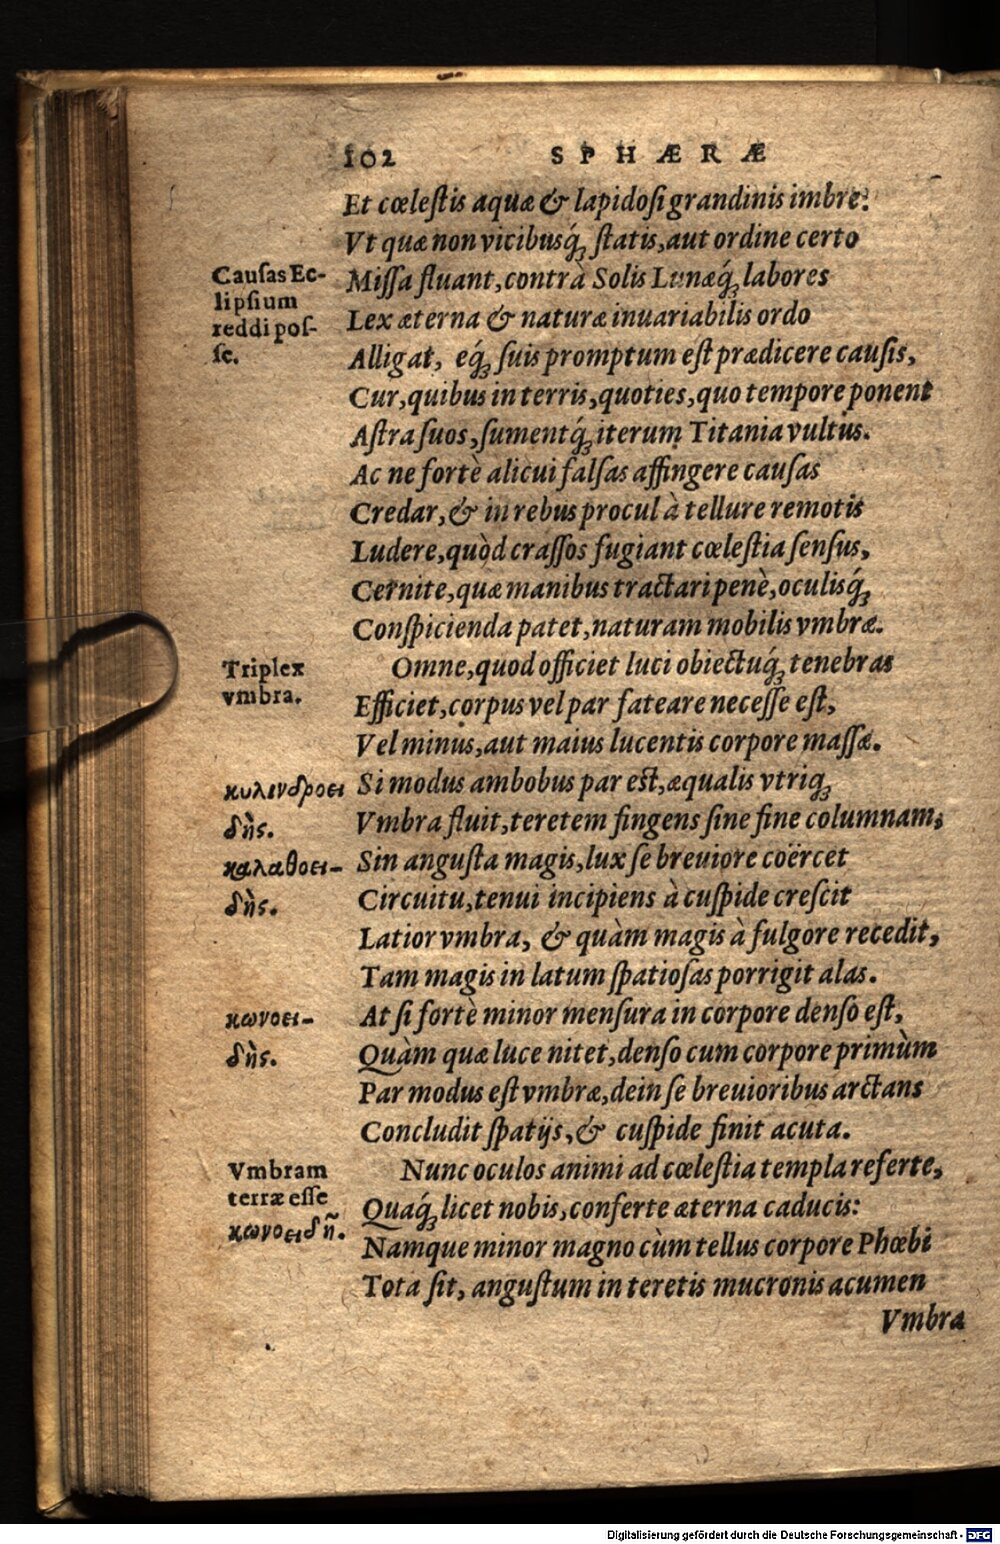 102 SPHÆRÆ
Et cœleſtis aquæ & lapidoſi grandinis imbre:
Vt quæ non vicibusq́ꝫ ſtatis, aut ordine certo
Miſſa fluant, contrà Solis Lunæq́ꝫ labores
Lex æterna & naturæ inuariabilis ordo
Alligat, eq́ꝫ ſuis promptum eſt prædicere cauſis,
Cur, quibus in terris, quoties, quo tempore ponent
Aſtra ſuos, ſumentq́ꝫ iterum Titania vultus.
Ac ne fortè alicui falſas affingere cauſas
Credar, & in rebus procul à tellure remotis
Ludere, quòd craſſos fugiant cœleſtia ſenſus,
Cernite, quæ manibus tractari penè, oculisq́ꝫ
Conſpicienda patet, naturam mobilis vmbræ.
Omne, quod officiet luci obiectuq́ꝫ tenebras
Efficiet, corpus vel par fateare neceſſe eſt,
Vel minus, aut maius lucentis corpore maſſæ.
Si modus ambobus par eſt, æqualis vtriqꝫ
Vmbra fluit, teretem fingens ſine fine columnam,
Sin anguſta magis, lux ſe breuiore coërcet
Circuitu, tenui incipiens à cuſpide creſcit
Latior vmbra, & quàm magis à fulgore recedit,
Tam magis in latum ſpatioſas porrigit alas.
At ſi fortè minor menſura in corpore denſo eſt,
Quàm quæ luce nitet, denſo cum corpore primùm
Par modus eſt vmbræ, dein ſe breuioribus arctans
Concludit ſpatijs, & cuſpide finit acuta.
Nunc oculos animi ad cœleſtia templa referte,
Quaq́ꝫ licet nobis, conferte æterna caducis:
Namque minor magno cùm tellus corpore Phœbi
Tota ſit, anguſtum in teretis mucronis acumen
Vmbra
Cauſas Ec-
lipſium
reddi poſ-
ſe.
Triplex
vmbra.
κυλινδροει
δὴς.
καλαθοει-
δὴς.
κωνοει-
δὴς.
Vmbram
terræ eſſe
κωνοειδῆ.
Digitalisierung gefördert durch die Deutsche Forschungsgemeinschaft - DFG